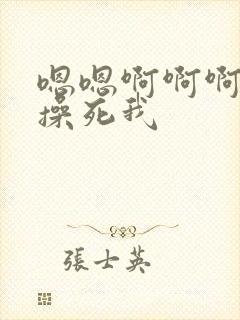 嗯嗯啊啊啊
操死我
張士英